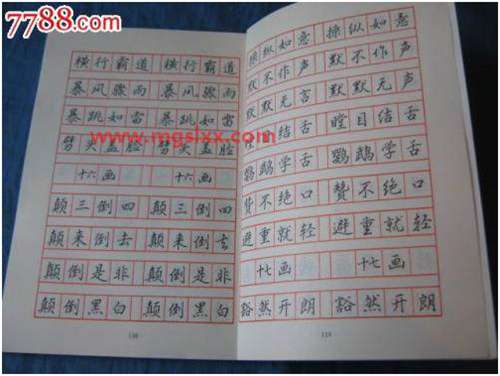 7788.com
横行霸道 横行霸道
暴风骤雨 暴风骤雨
暴跳如雷 暴跳如雷
劈头盖脸 劈头盖脸
十六画 十六画
颠三倒四 颠三倒四
颠来倒去 颠来倒去
颠倒是非 颠倒是非
颠倒黑白 颠倒黑白
操纵如意 操纵如意
默不作声 默不作声
默默无言 默默无言
瞠目结舌 瞠目结舌
鹦鹉学舌 鹦鹉学舌
赞不绝口 赞不绝口
避重就轻 避重就轻
十七画 十七画
豁然开朗 豁然开朗
www.mgslxx.com